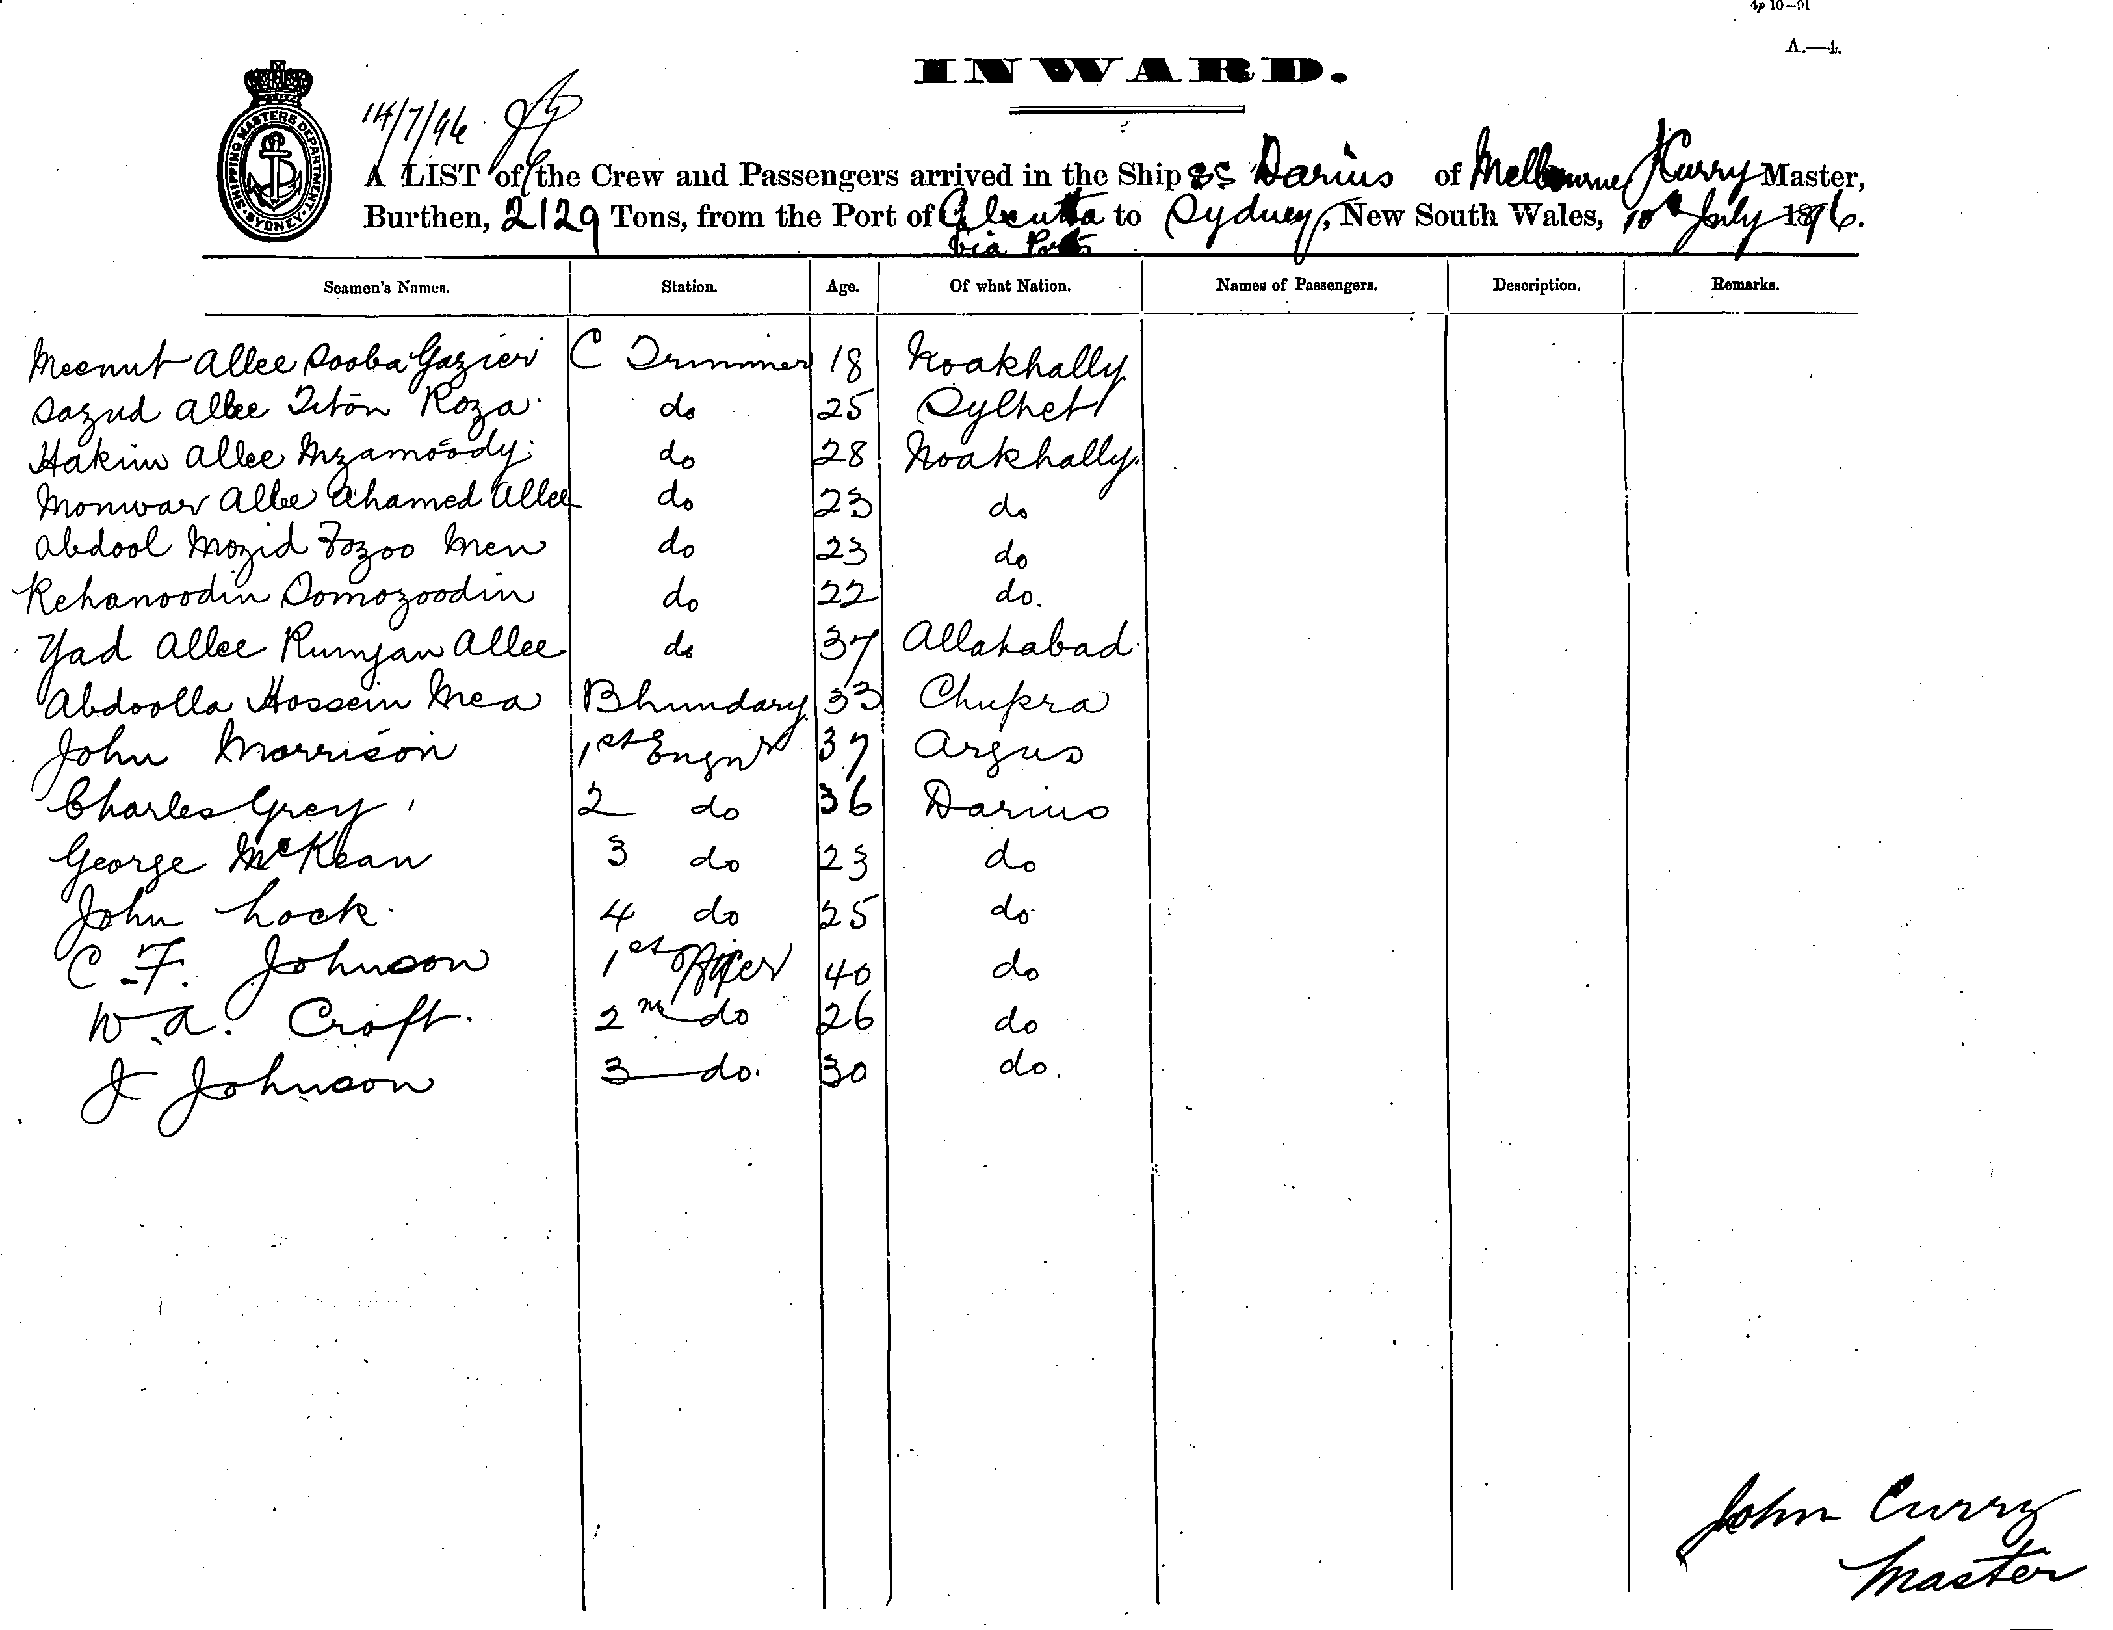 4p 10—91
A.—4.
INWARD.
14/7/96
SHIPPING MASTERS DEPARTMENT SYDNEY N.S.W.
A LIST of the Crew and Passengers arrived in the Ship SS Darius of Melbourne J Curry Master,
Burthen, 2129 Tons, from the Port of Calcutta to Sydney, New South Wales, 10th July 1896.
via Ports
Seamen's Names. Station. Age. Of what Nation. Names of Passengers. Description. Remarks.
Meenut Allee Sooba Gazier C Trimmer 18 Noakhally
Sazud Allee Titon Roza do 25 Sylhet
Hakim Allee Mzamoody do 28 Noakhally
Monwar Allee Ahamed Allee do 23 do
Abdool Mozid Fozoo Men do 23 do
Rehanoodin Somozoodin do 22 do.
Yad Allee Rumjan Allee do 37 Allahabad
Abdoolla Hossein Mea Bhundary 33 Chupra
John Morrison 1st Engnr 37 Argus
Charles Grey 2 do 36 Darius
George McKean 3 do 23 do
John Lock. 4 do 25 do
C. F. Johnson 1st Officer 40 do
W. A. Croft. 2nd do 26 do
J Johnson 3 do. 30 do.
John Curry
Master